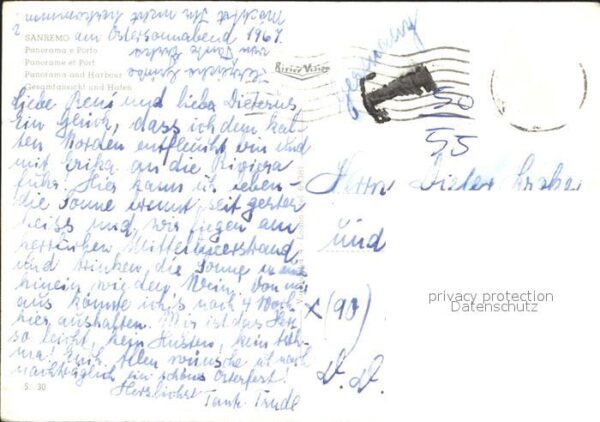 SANREMO am Ostersonnabend 1967.
Panorama e Porto
Panorama et Port
Panorama and Harbour
Gesamtansicht und Hafen
Herzliche Grüsse
von Tante Erika
Liebe Reni und lieber Dieter
ein Glück, dass ich dem kal-
ten Norden entfleucht bin und
mit Erika an die Riviera
fuhr. Hier kann ich leben
die Sonne brennt seit gestern
heiss und wir liegen am
herrlichen Mittelmeerstrand
und trinken die Sonne in uns
hinein wie den Wein. Von mir
aus könnte ich's noch 4 Woch
hier aushalten. Mir ist das Herz
so leicht, kein Husten, kein Asth-
ma! Euch allen wünsche ich noch
nachträglich ein schönes Osterfest!
Herzlichst
Tante Trude
Germany
50
55
Herrn Dieter
und
x (90)
privacy protection
Datenschutz
S. 30